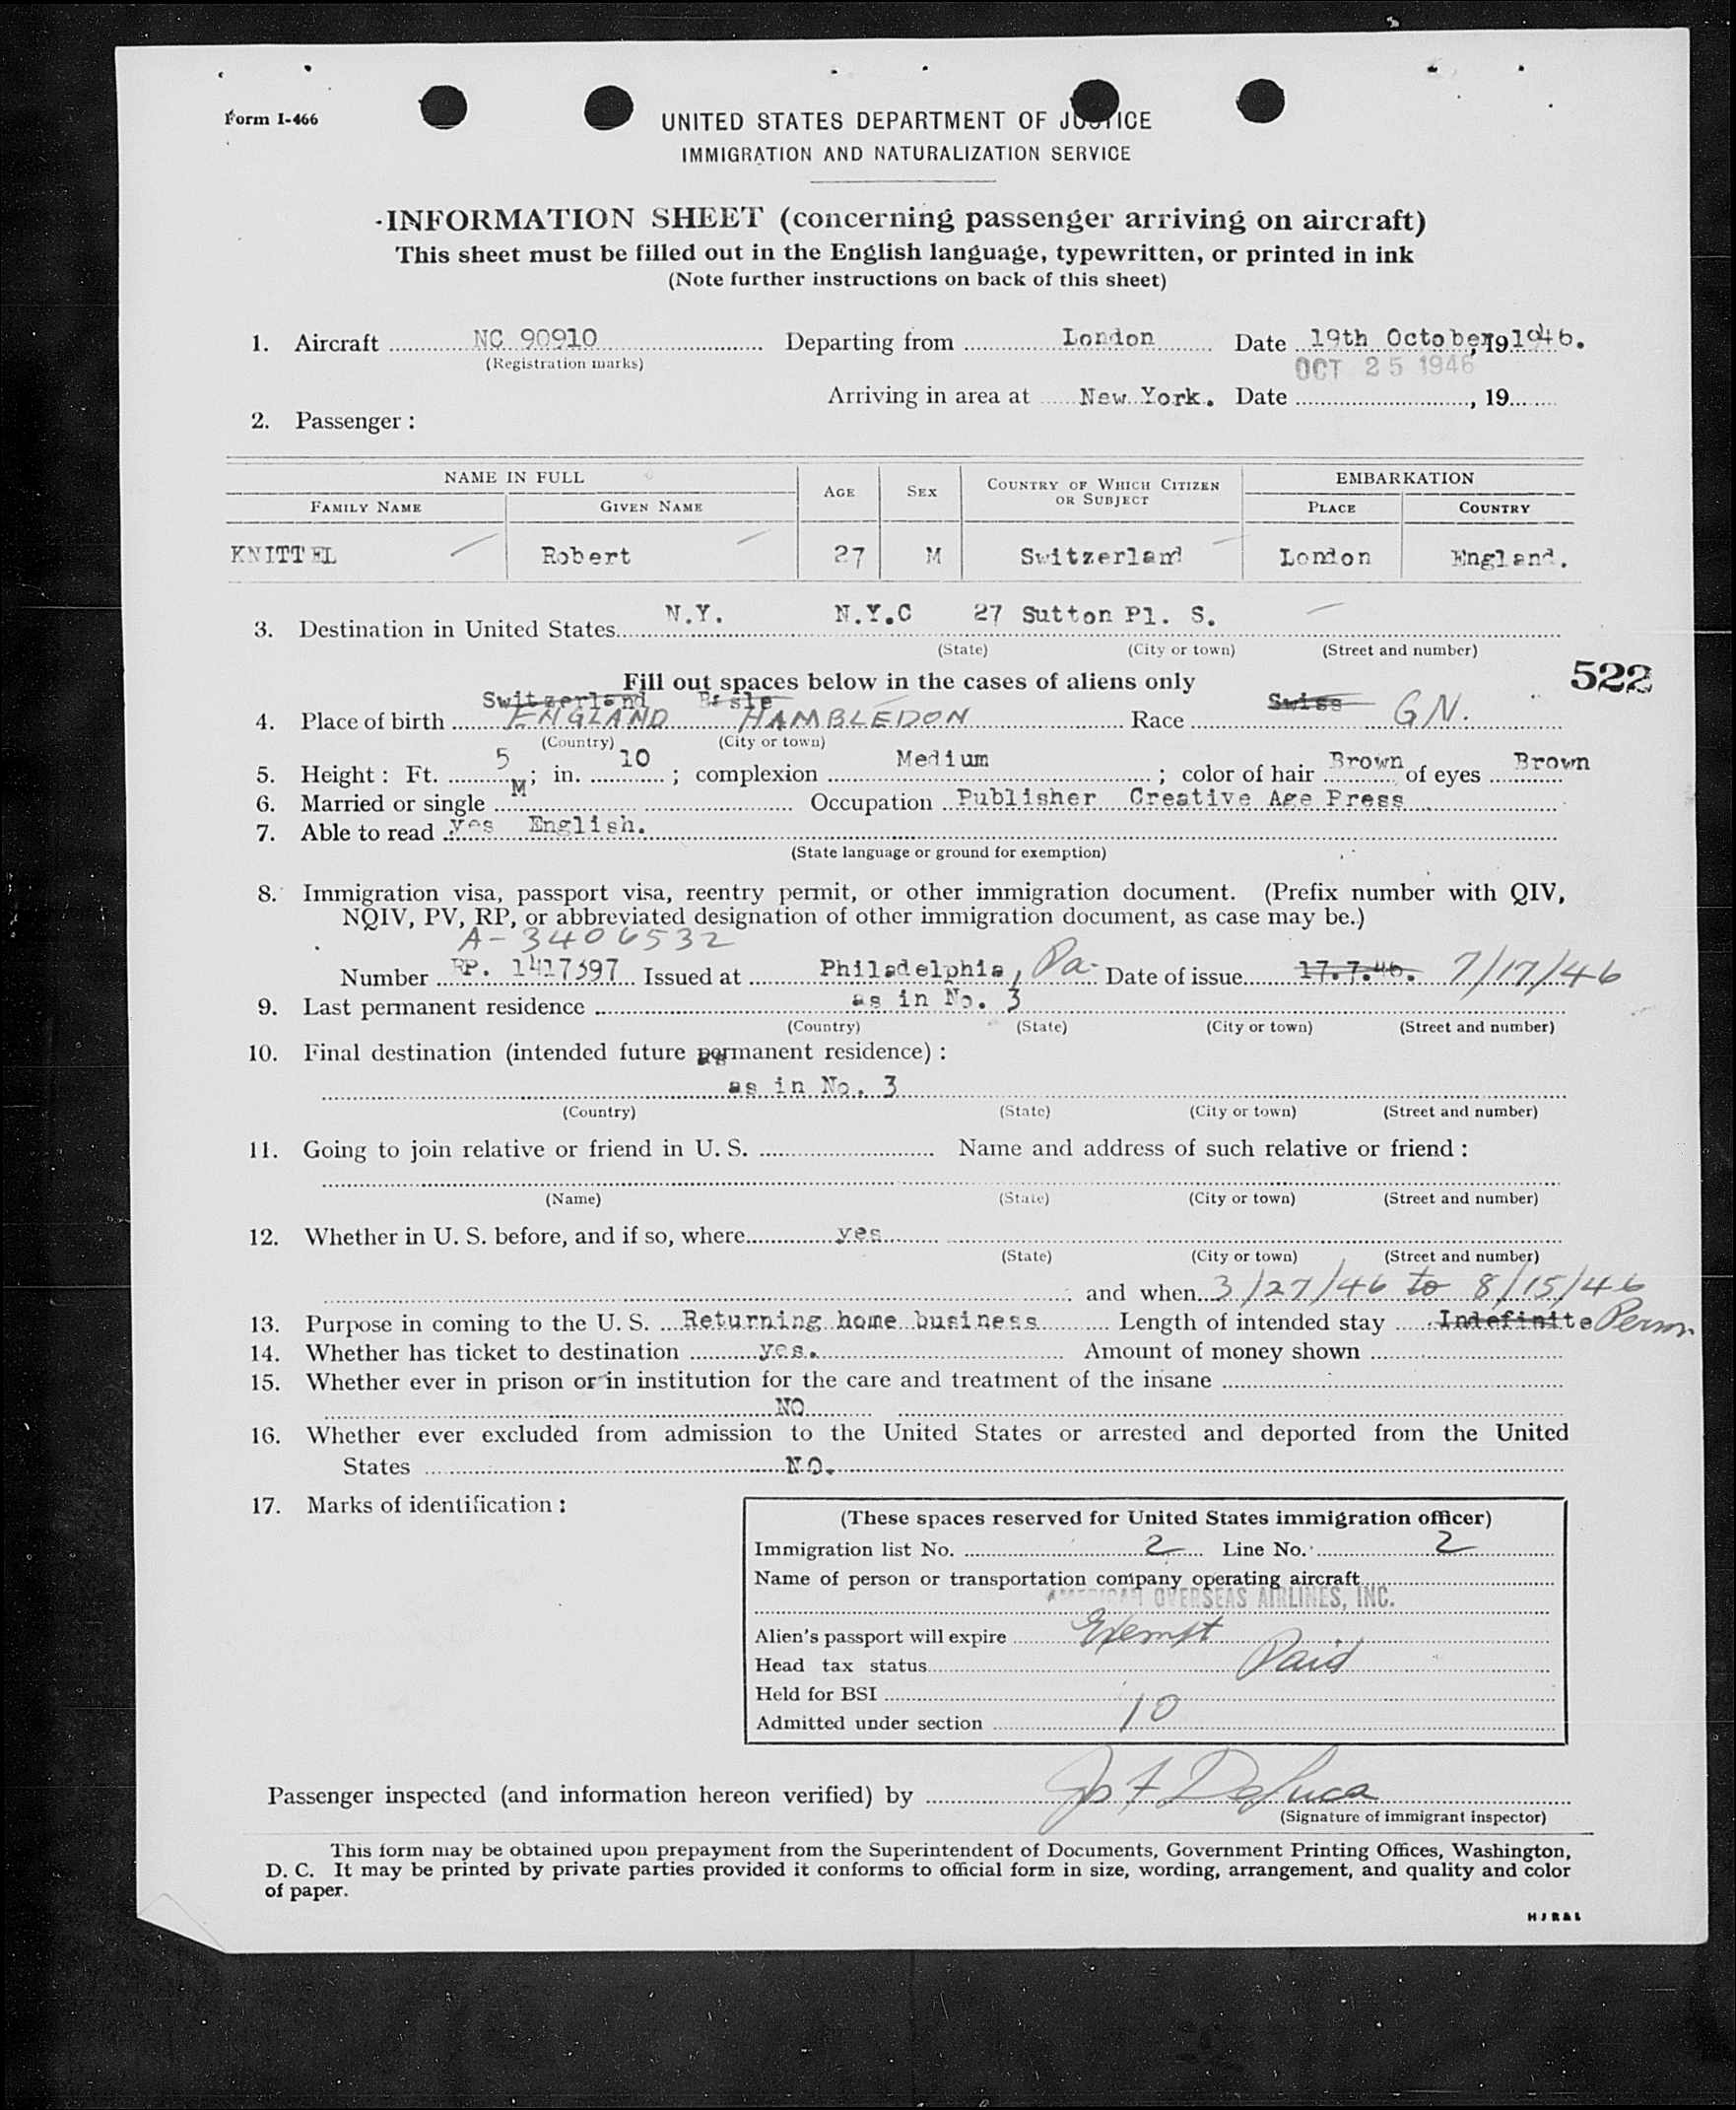 Form I-466
UNITED STATES DEPARTMENT OF JUSTICE
IMMIGRATION AND NATURALIZATION SERVICE
INFORMATION SHEET (concerning passenger arriving on aircraft)
This sheet must be filled out in the English language, typewritten, or printed in ink
(Note further instructions on back of this sheet)
1. Aircraft NC 90910 Departing from London Date 19th October, 19 1946.
(Registration marks)
OCT 25 1946
Arriving in area at New York. Date , 19
2. Passenger :
NAME IN FULL AGE SEX COUNTRY OF WHICH CITIZEN OR SUBJECT EMBARKATION
FAMILY NAME GIVEN NAME PLACE COUNTRY
KNITTEL Robert 27 M Switzerland London England.
3. Destination in United States N.Y. N.Y.C 27 Sutton Pl. S.
(State) (City or town) (Street and number)
Fill out spaces below in the cases of aliens only
522
Switzerland Basle Swiss
4. Place of birth ENGLAND HAMBLEDON Race GN.
(Country) (City or town)
5. Height : Ft. 5 ; in. 10 ; complexion Medium ; color of hair Brown of eyes Brown
6. Married or single M Occupation Publisher Creative Age Press
7. Able to read yes English.
(State language or ground for exemption)
8. Immigration visa, passport visa, reentry permit, or other immigration document. (Prefix number with QIV,
NQIV, PV, RP, or abbreviated designation of other immigration document, as case may be.)
A-3406532
Number RP. 1417397 Issued at Philadelphia, Pa. Date of issue 17.7.46. 7/17/46
9. Last permanent residence as in No. 3
(Country) (State) (City or town) (Street and number)
10. Final destination (intended future permanent residence) :
as in No. 3
(Country) (State) (City or town) (Street and number)
11. Going to join relative or friend in U. S. Name and address of such relative or friend :
(Name) (State) (City or town) (Street and number)
12. Whether in U. S. before, and if so, where yes
(State) (City or town) (Street and number)
and when 3/27/46 to 8/15/46
13. Purpose in coming to the U. S. Returning home business Length of intended stay Indefinite Perm.
14. Whether has ticket to destination yes. Amount of money shown
15. Whether ever in prison or in institution for the care and treatment of the insane
NO
16. Whether ever excluded from admission to the United States or arrested and deported from the United
States NO.
17. Marks of identification :
(These spaces reserved for United States immigration officer)
Immigration list No. 2 Line No. 2
Name of person or transportation company operating aircraft
AMERICAN OVERSEAS AIRLINES, INC.
Alien's passport will expire Exempt
Head tax status Paid
Held for BSI
Admitted under section 10
Passenger inspected (and information hereon verified) by Jos F DeLuca
(Signature of immigrant inspector)
This form may be obtained upon prepayment from the Superintendent of Documents, Government Printing Offices, Washington,
D. C. It may be printed by private parties provided it conforms to official form in size, wording, arrangement, and quality and color
of paper.
H J R & L